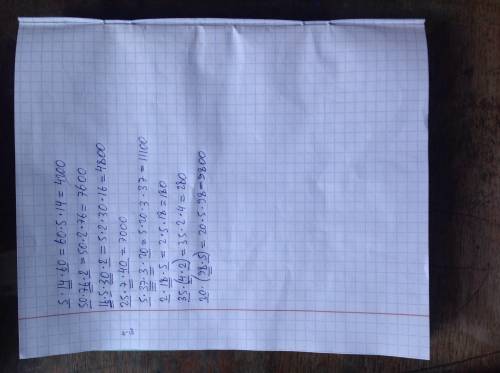 5·14·60=60·5·14=4200
50·76·2=50·2·76=7600
16·5·30·2=5·2·30·16=4800
25·7·40=7000
5·37·3·20=5·20·3·37=11100
2·18·5=2·5·18=180
35·(4·2)=35·2·4=280
20·(98·5)=20·5·98=9800